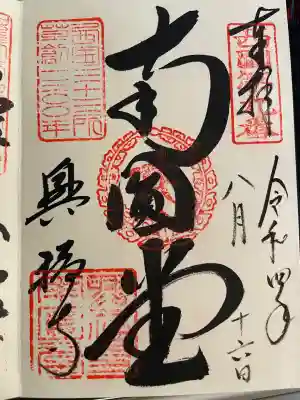 奉拝
令和四年
八月
十六日
南圓堂
興福寺
西国三十三所
草創一三〇〇年